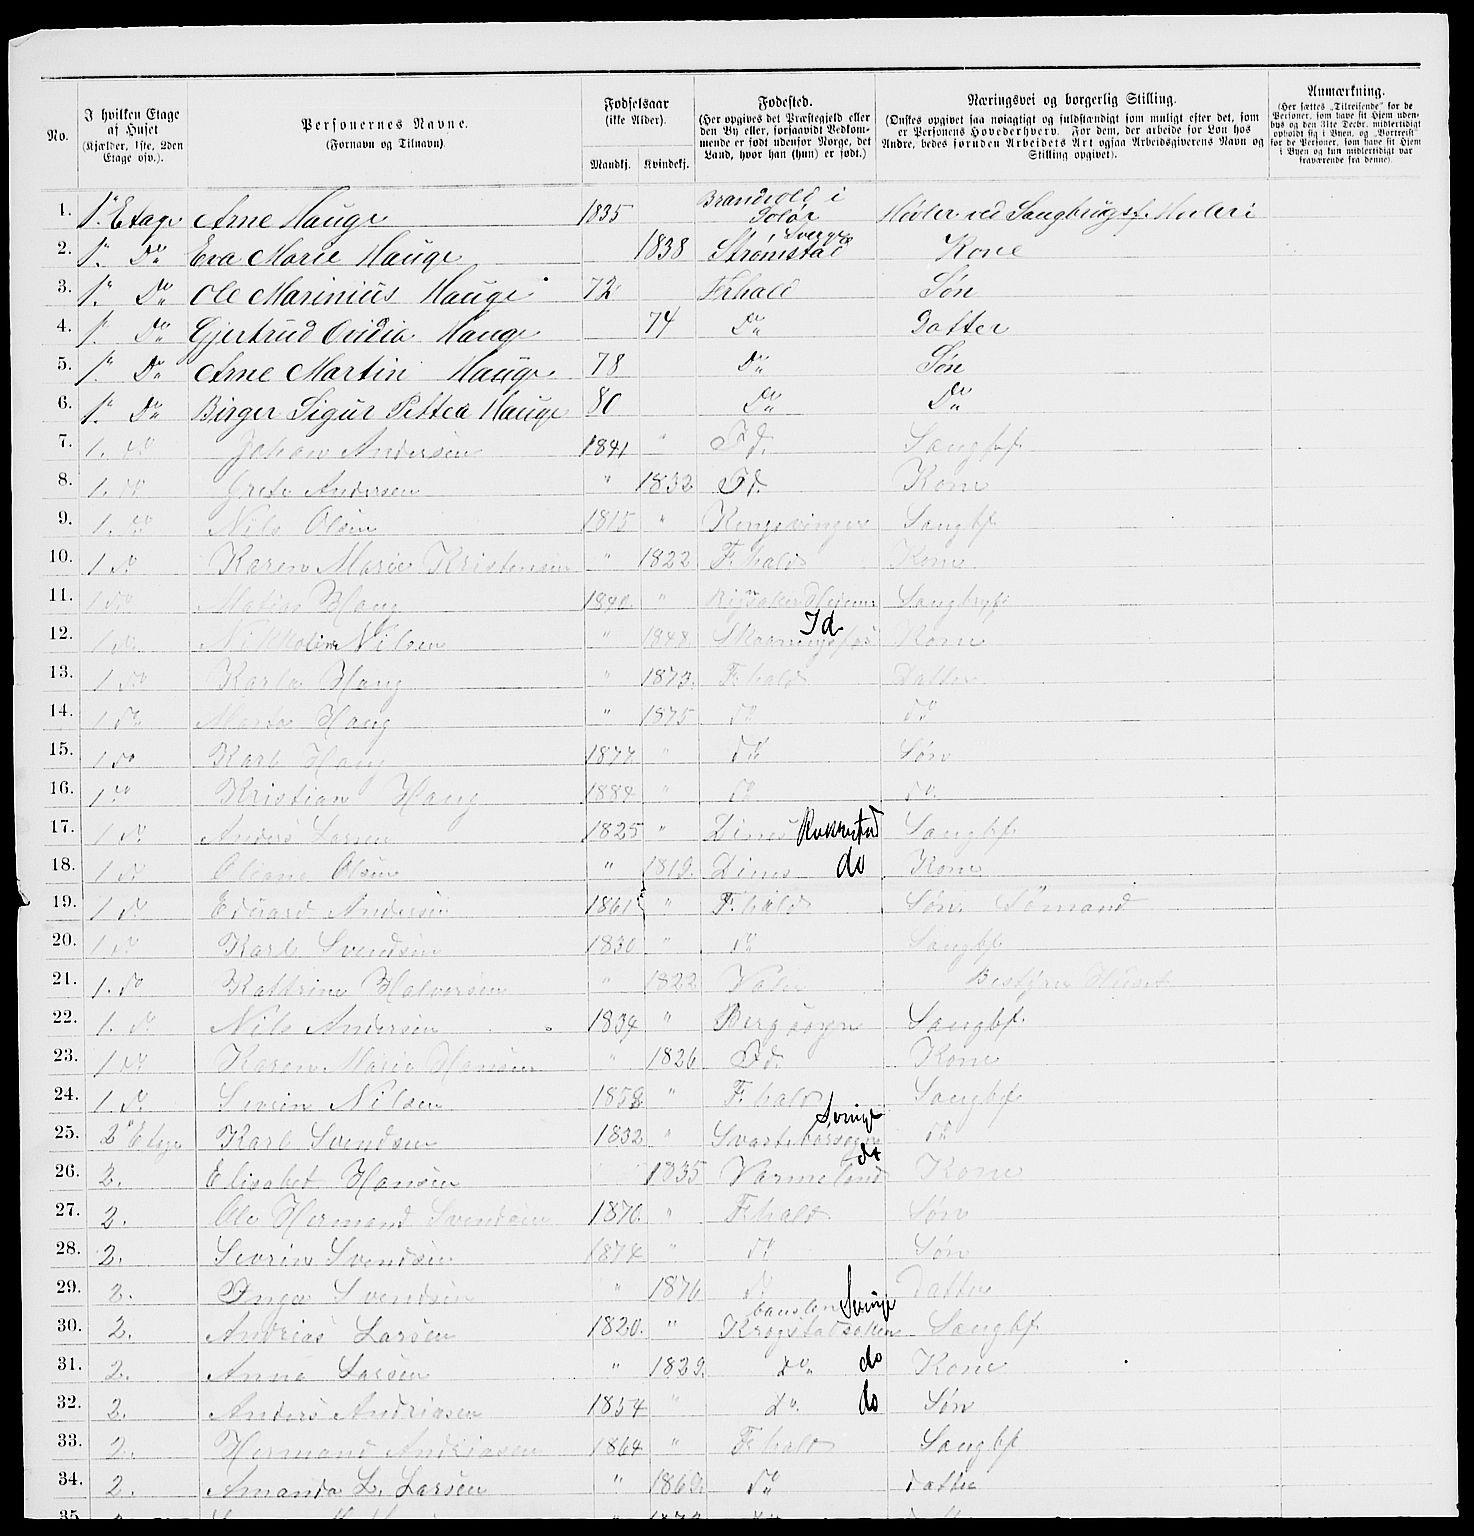 No.
I hvilken Etage af Huset (Kjælder, 1ste, 2den Etage osv.).
Personernes Navne. (Fornavn og Tilnavn).
Fødselsaar (ikke Alder). Mandkj. Kvindekj.
Fødested. (Her opgives det Præstegjeld eller den By eller, forsaavidt Vedkommende er født udenfor Norge, det Land, hvor han (hun) er født.)
Næringsvei og borgerlig Stilling. (Ønskes opgivet saa nøiagtig og fuldstændigt som muligt efter det, som er Personens Hovederhverv. For dem, der arbeide for Løn hos Andre, bedes foruden Arbeidets Art ogsaa Arbeidsgiverens Navn og Stilling opgivet).
Anmærkning. (Her sættes „Tilreisende“ for de Personer, som have sit Hjem udenbys og den 31te Decbr. midlertidigt opholdt sig i Byen, og „Bortreist“ for de Personer, som have sit Hjem i Byen og kun midlertidigt var fraværende fra denne).
1. 1" Etage Arne Hauge 1835 Brandvold i Solør Høvler ved
2. 1" Do Eva Marie Hauge 1838 Strømstad Sverge Kone
3. 1" Do Ole Marinius Hauge 72 Frhald Søn
4. 1" Do Gjertrud Ovidia Hauge 74 Do Datter
5. 1" Do Arne Martin Hauge 78 Do Søn
6. 1" Do Birger Sigur Hauge 80 Do Do
7. 1. do Johan Andersen 1841 " Id. Saugbf.
8. 1. do Grete Andersen " 1832 Id. Kone
9. 1. do Nils Olsen 1815 " Kongsvinger Saugbf
10. 1 do Karen Marie Kristensen " 1822 F.hald Kone
11. 1 do Matias Haug 1840 "
12. 1 do Nikkoline Nilsen " 1848 Id Kone
13. 1 do Karla Haug " 1873. F.hald Datter
14. 1 do Marta Haug " 1875 do do
15. 1 do Karl Haug 1877 " do Søn
16. 1 do Kristian Haug 1884 " do do
17. 1 do Anders Larsen 1825 " Rakkestad Saugbf
18. 1 do Oliane Olsen " 1819. do Kone
19. 1 do Edvard Andersen 1861 " F.hald Søn Sømand
20. 1 do Karl Svendsen 1830 " do Saugbf
21. 1. do Kattrine Halversen " 1822 Bestyrer Huset
22. 1. do Nils Andersen 1834 " Berg sogn Saugbf.
23. 1 do Karen Marie Hansen " 1826 Id. Kone
24. 1. do Sevrin Nilsen 1858 " F.hald Saugbf
25. 2" Etge Karl Svendsen 1832 " Sverige do
26. 2. Elisabet Hansen 1835 Varmeland do Kone
27. 2. Ole Hermand Svendsen 1870. " F.hald Søn
28. 2. Sevrin Svendsen 1874 " do Søn
29. 2. Inga Svendsen " 1876 do Datter
30. 2. Andrias Larsen 1820. " Krogstadsoken Sverige Saugbf
31. 2. Anna Larsen " 1829. do do Kone
32. 2. Anders Andriasen 1854 " do do Søn
33. 2. Hermand Andriasen 1864 " F.hald Saugbf
34. 2. Amanda L. Larsen " 1869. do datter
35